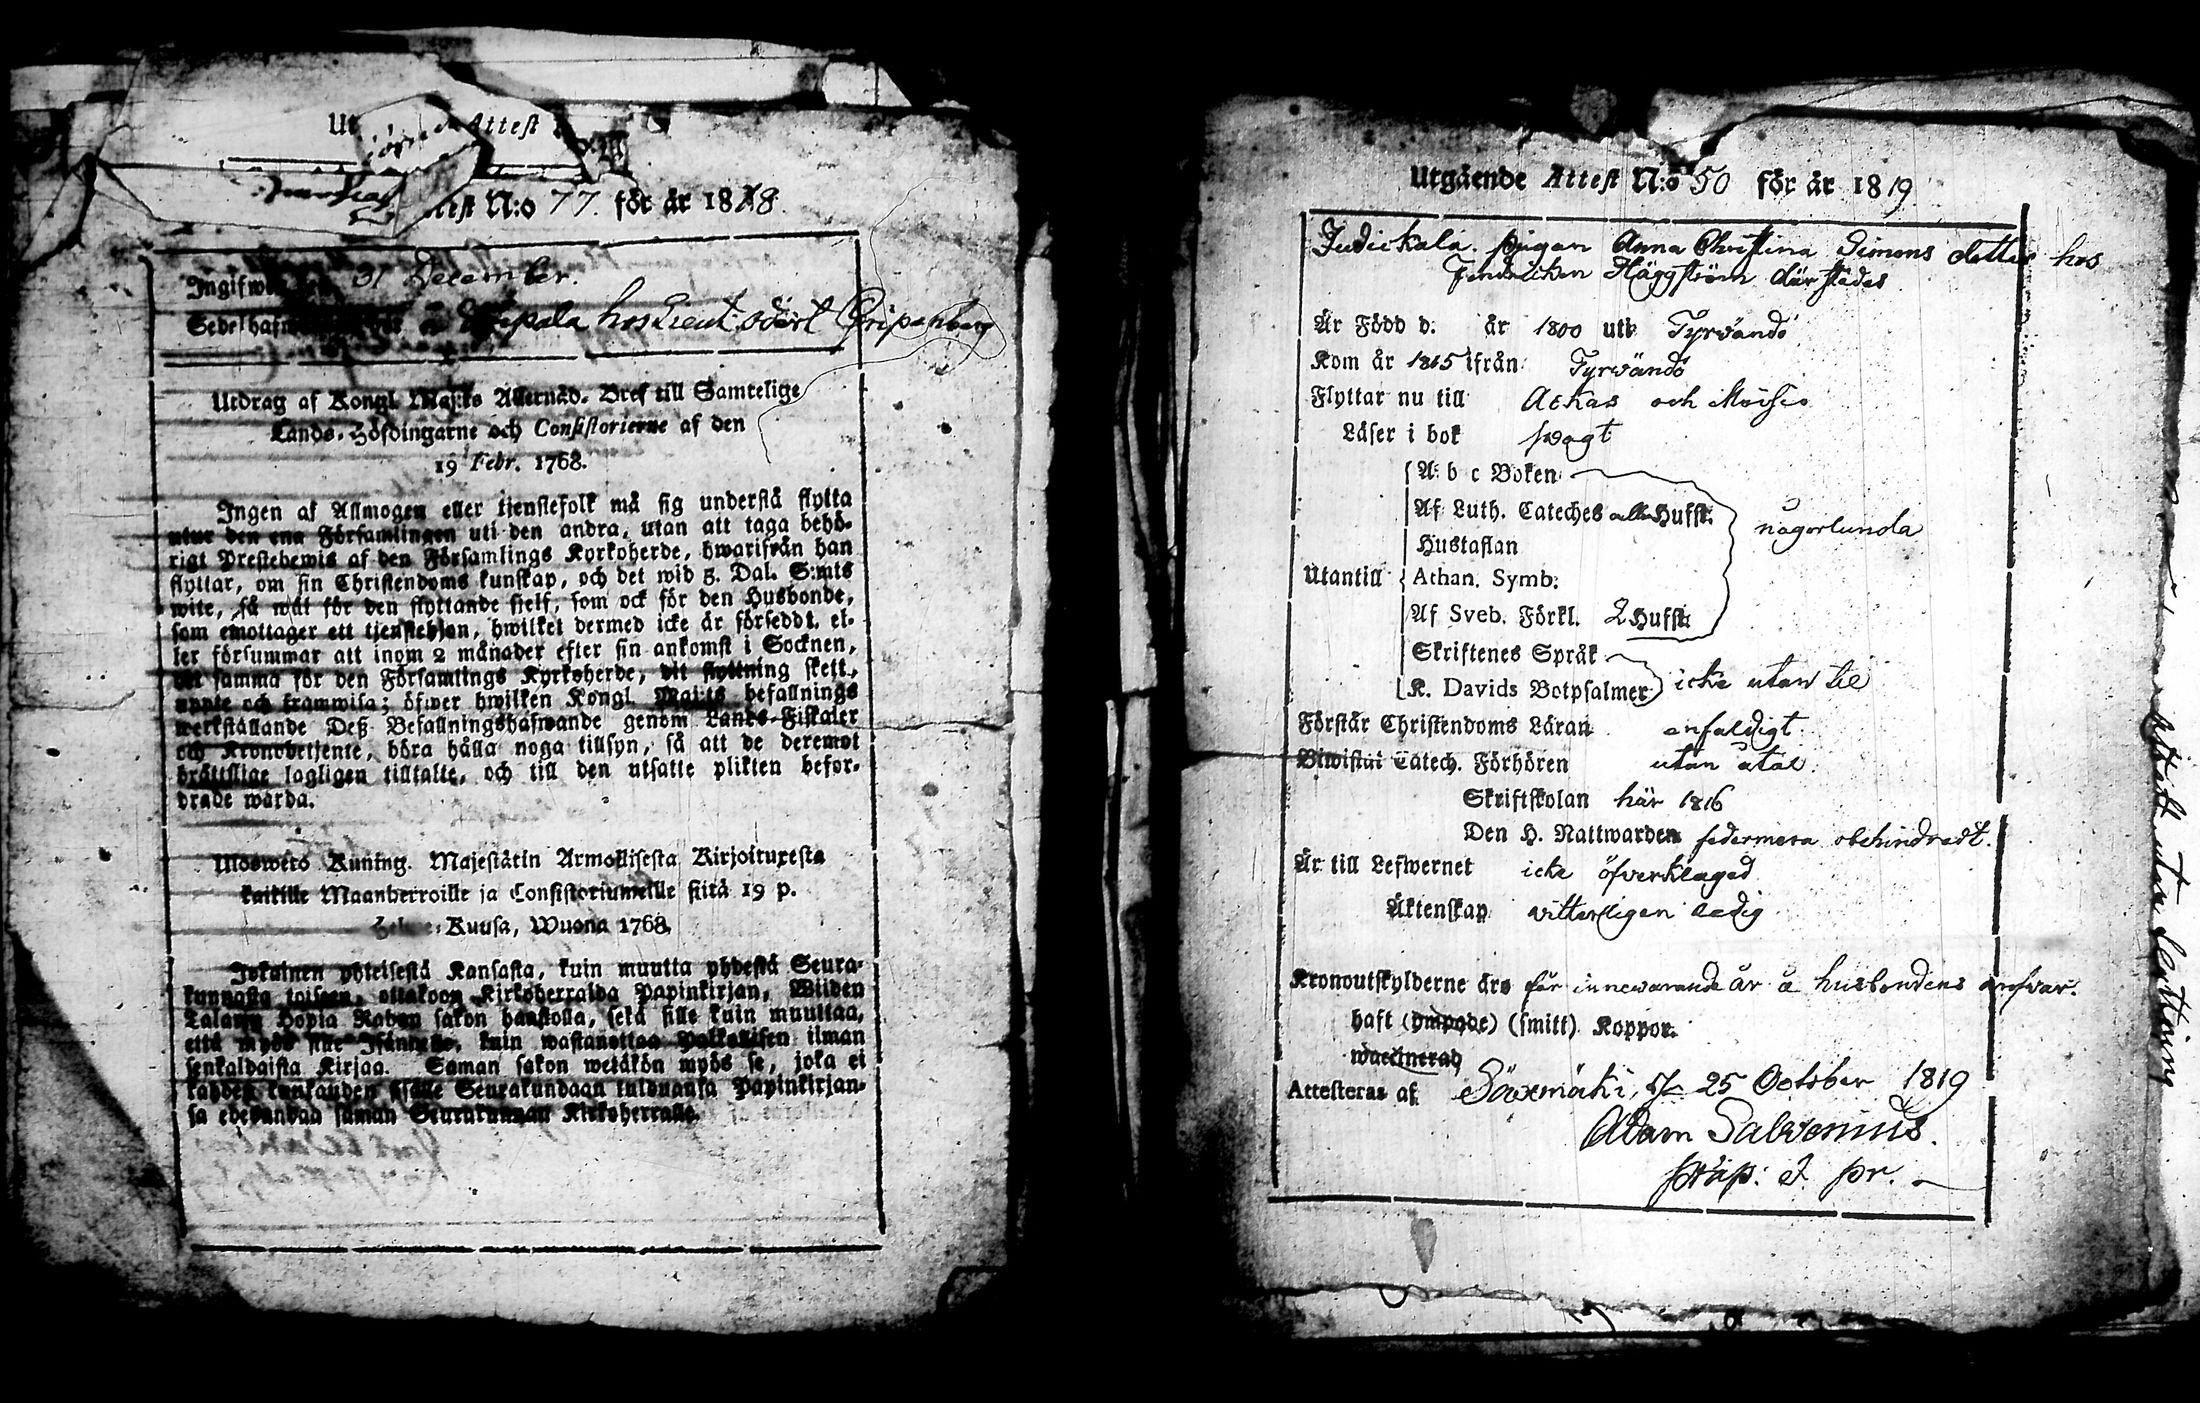 Attest
Attest N:o 77. för år 1818.
31 December.
hos Lieut. Gripenberg
Utdrag af Kongl. Maj:ts Allernåd. Bref till Samtelige
Lands-Höfdingarne och Consistorierne af den
19 Febr. 1768.
Ingen af Allmogen eller tjenstefolk må sig understå flytta
utur den ena Församlingen uti den andra, utan att taga behö-
rigt Prestebewis af den Församlings Kyrkoherde, hwarifrån han
flyttar, om sin Christendoms kunskap, och det wid 5. Dal. S:mts
wite, så wäl för den flyttande sielf, som ock för den Husbonde,
som emottager ett tjenstehjon, hwilket dermed icke är förseddt, el-
ler försummar att inom 2 månader efter sin ankomst i Socknen,
samma för den Församlings Kyrkoherde, dit flyttning skett,
uppte och framwisa; öfwer hwilken Kongl. Maj:ts befallnings
werkställande Deß Befallningshafwande genom Lands-Fiskaler
och Kronobetjente, böra hålla noga tillsyn, så att de deremot
brättslige lagligen tilltalte, och till den utsatte plikten befor-
drade warda.
Ulosweto Kuning. Majestätin Armollisesta Kirjoituxesta
kaikille Maanherroille ja Consistoriumeille siitä 19 p.
Kuusa, Wuona 1768.
Jokainen yhteisestä Kansasta, kuin muutta yhdestä Seura-
kunnasta toiseen, ottakoon Kirkoherralda Papinkirjan, Wiiden
Talarin Hopia Rahan sakon haastolla, sekä sille kuin muuttaa,
että myös sille Isännälle, kuin wastanottaa Palkollisen ilman
senkaldaista Kirjaa. Saman sakon wetäkön myös se, joka ei
kahden kuukauden sisälle Seurakundaan tulduansa Papinkirjan-
sa edesanna saman Seurakunnan Kirkoherralle.
Utgående Attest N:o 50 för år 1819
Judickala. pigan Anna Christina Simons dotter hos
Fendricken Häggström därstädes
Är Född d. år 1800 uti Tyrvändö
Kom år 1815 ifrån Tyrvändö
Flyttar nu till Ackas och
Läser i bok svagt
A b c Boken
Af Luth. Cateches alla Hufst.
Hustaflan
någorlunda
Utantill Athan. Symb.
Af Sveb. Förkl. 2 Hufst.
Skriftenes Språk
K. Davids Botpsalmer icke utan til
Förstår Christendoms Läran enfaldigt
Biwistat Catech. Förhören utan åtal.
Skriftskolan här 1816
Den H. Nattwarden sedermera obehindradt.
Är till Lefwernet icke öfverklagad
Äktenskap vitterligen ledig
Kronoutskylderne äro för innevarande år å husbondens ansvar.
haft (ympade) (smitt) Koppor.
waccinerad
Attesteras af Sääxmäki, 25 October 1819
Adam Salvenius.
præp: & pr.